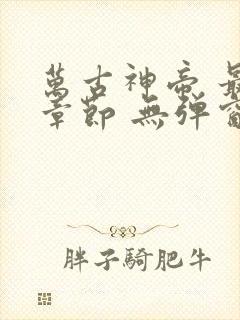 萬古神帝 最
章節 無彈窗
胖子騎肥牛